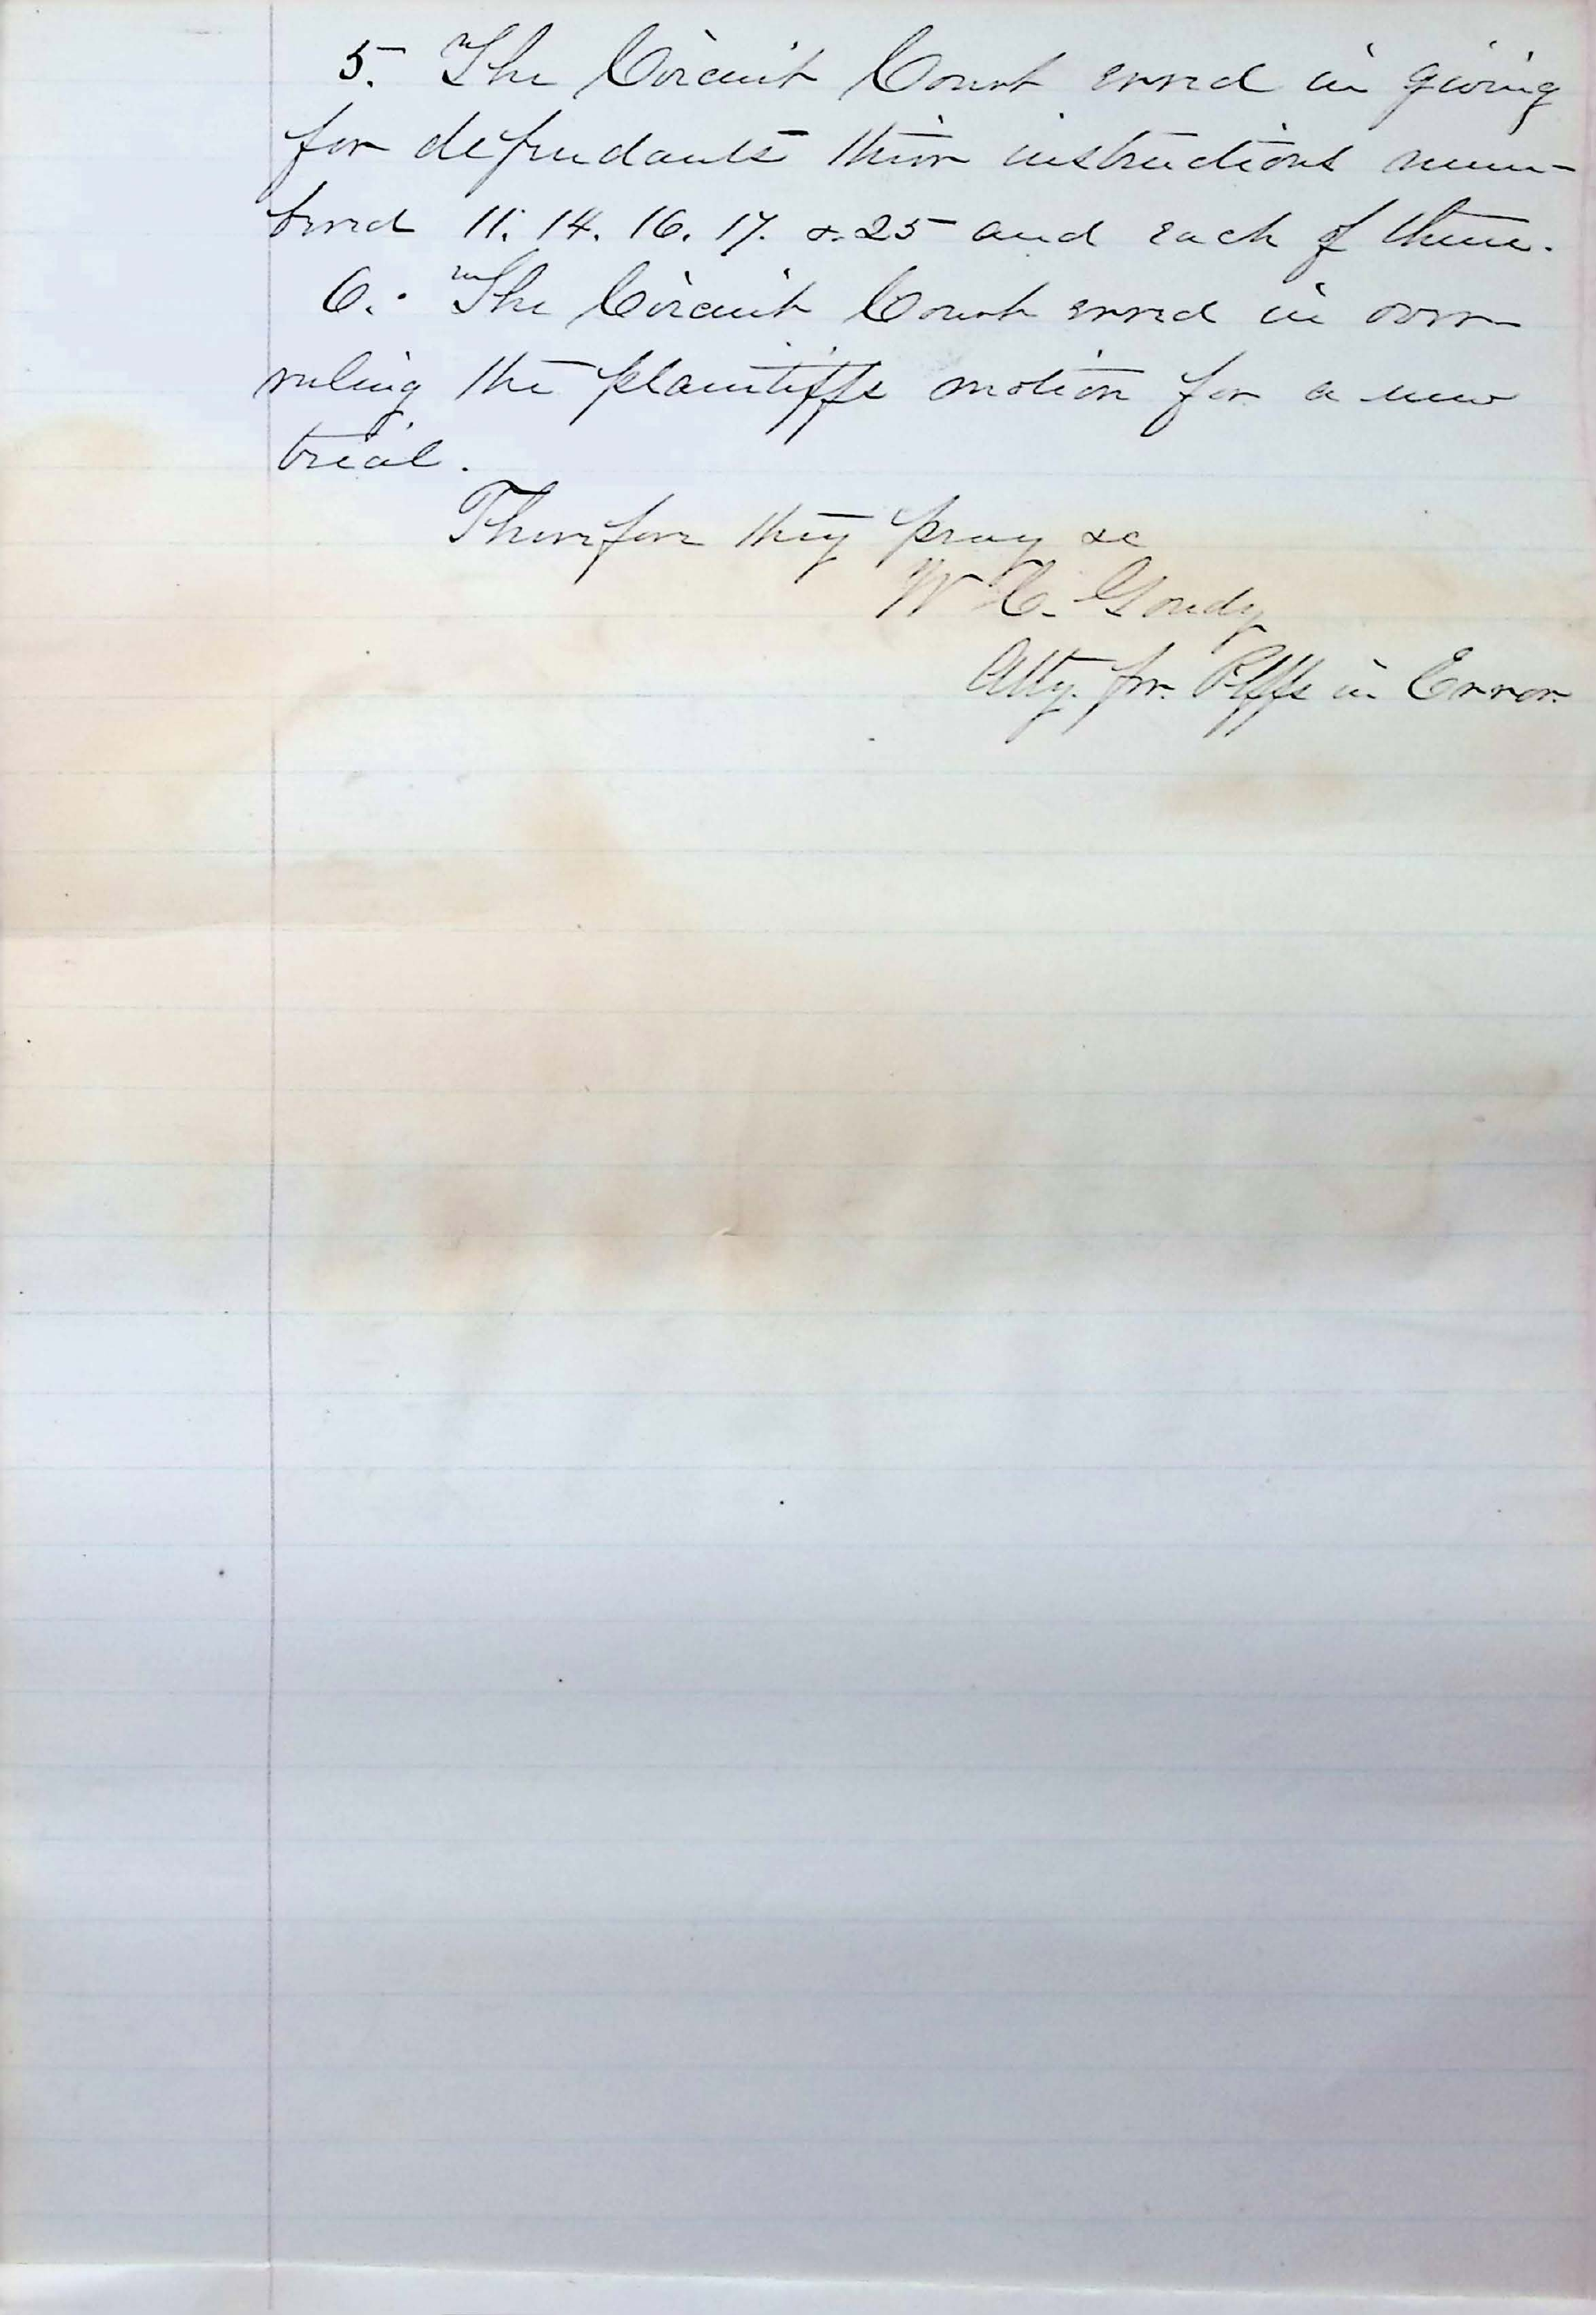 5. The Circuit Court erred in giving
for defendants their instructions num-
bered 11. 14. 16. 17. & 25 and each of them.
6. The Circuit Court erred in over
ruling the plaintiffs motion for a new
trial.
Therefore they pray &c
W C. Goudy
Atty. for Plffs in Error.